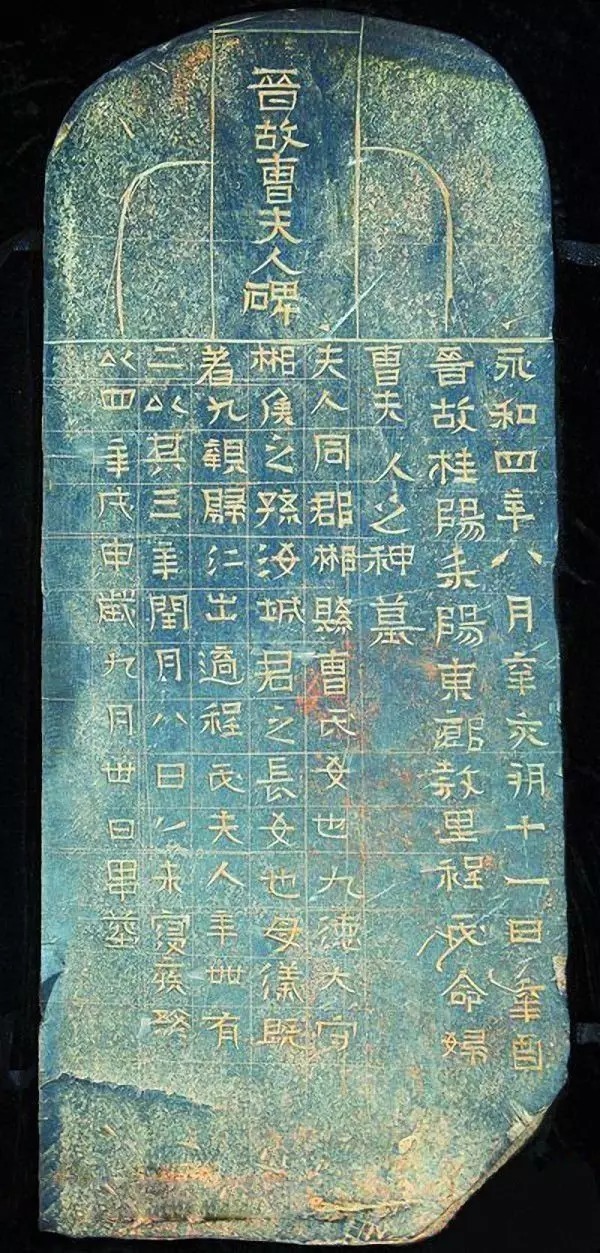 晉故曹夫人碑
永和四年八月辛亥朔十一日辛酉
晉故桂陽耒陽東鄉敦里程氏命婦
曹夫人之神墓
夫人同郡郴縣曹氏女也九德大守
郴侯之孫汝城君之長女也母儀既
著九親歸仁出適程氏夫人年卅有
二以其三年閏月八日以來寑疾終
以四年戊申歲九月卅日畢葬